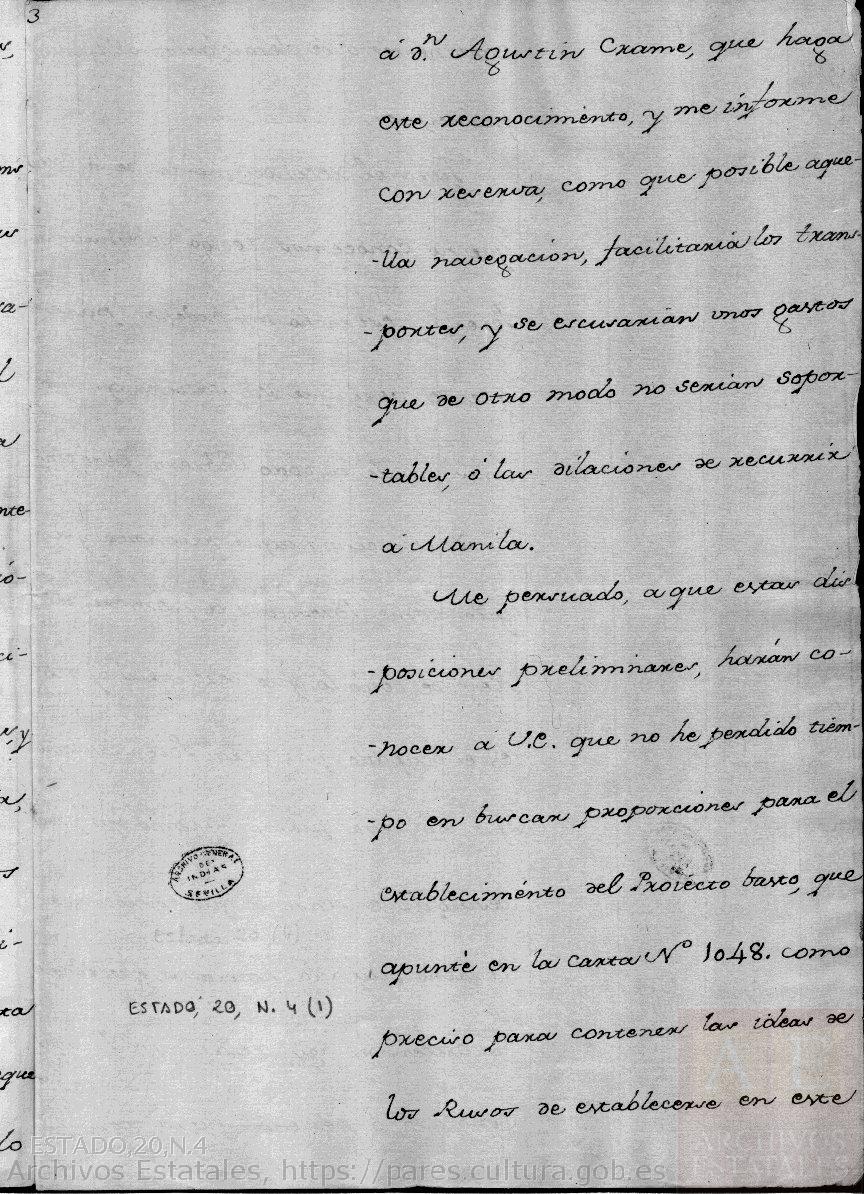 3
á d.n Agustin Crame, que haga
este reconocimiento, y me informe
con reserva, como que posible aque-
-lla navegacion, facilitaria los trans-
-portes, y se escusarian unos gastos
que de otro modo no serian sopor-
-tables, ó las dilaciones de recurrir
á Manila.
Me persuado, a que estas dis
-posiciones preliminares, harán co-
-nocer á V.E. que no he perdido tiem-
-po en buscar proporciones para el
establecimiento del Proiecto basto, que
apunté en la carta No 1048. como
preciso para contener las ideas de
los Rusos de establecerse en este
ARCHIVO GENERAL
DE
INDIAS
SEVILLA
ESTADO, 20, N. 4 (1)
ESTADO,20,N.4
Archivos Estatales, https://pares.cultura.gob.es
ARCHIVOS
ESTATALES